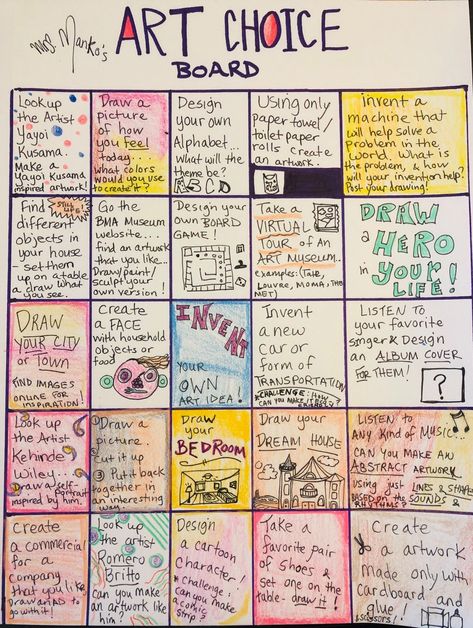 Mrs. Manko's
ART CHOICE
BOARD
Look up
the Artist
Yayoi
Kusama.
Make a
Yayoi Kusama
inspired artwork!
Draw a
picture
of how
you feel
today...
What colors
would you use
to create it?
Design
your own
Alphabet...
What will the
theme be?
A B C D
Using only
paper towel/
toilet paper
rolls create
an artwork.
Invent a
machine that
will help solve a
Problem in the
World. What is
the problem, & how
will your invention help?
Post your drawing!
STILL LIFE
Find
different
objects in
your house
- set them
up on a table
& draw what
you see.
Go the
BMA Museum
website....
find an artwork
that you like...
Draw/paint/
sculpt your
own version!
Design your
own BOARD
GAME!
Take a
VIRTUAL
TOUR of An
ART MUSEUM.
examples: (Tate,
Louvre, MOMA, THE
MET)
DRAW
a
HERO
in
YOUR
LIFE!
DRAW
YOUR CITY
or TOWN
FIND IMAGES
ONLINE FOR
INSPIRATION!
Create
a FACE
with household
objects or
food
INVENT
YOUR
OWN
ART IDEA!
Invent
a new
car or
form of
TRANSPORTATION
*CHALLENGE: HOW
CAN YOU MAKE IT ECO
FRIENDLY?
LISTEN TO
your favorite
singer & Design
an ALBUM COVER
FOR THEM!
?
Look up
the Artist
Kehinde
Wiley...
Draw a self-
portrait
inspired by him.
① Draw a
picture...
② cut it up
③ Put it back
together in
an interesting
way.
Draw
your
BEDROOM
Draw your
DREAM HOUSE
LISTEN TO
ANY Kind of MUSIC...
CAN YOU MAKE AN
ABSTRACT ARTWORK
using just LINES & SHAPES
BASED ON the SOUNDS &
RHYTHMS?
Create
a commercial
for a
company
that you like
Draw an AD
to go with it!
Look up
the artist
Romero
Britto
Can you make
an artwork like
him?
Design
a cartoon
Character!
*challenge:
can you make
a comic
strip?
Take a
favorite pair
of shoes &
set one on
the table - draw it!
Create
a artwork
made only with
Cardboard and
glue!
& SCISSORS!